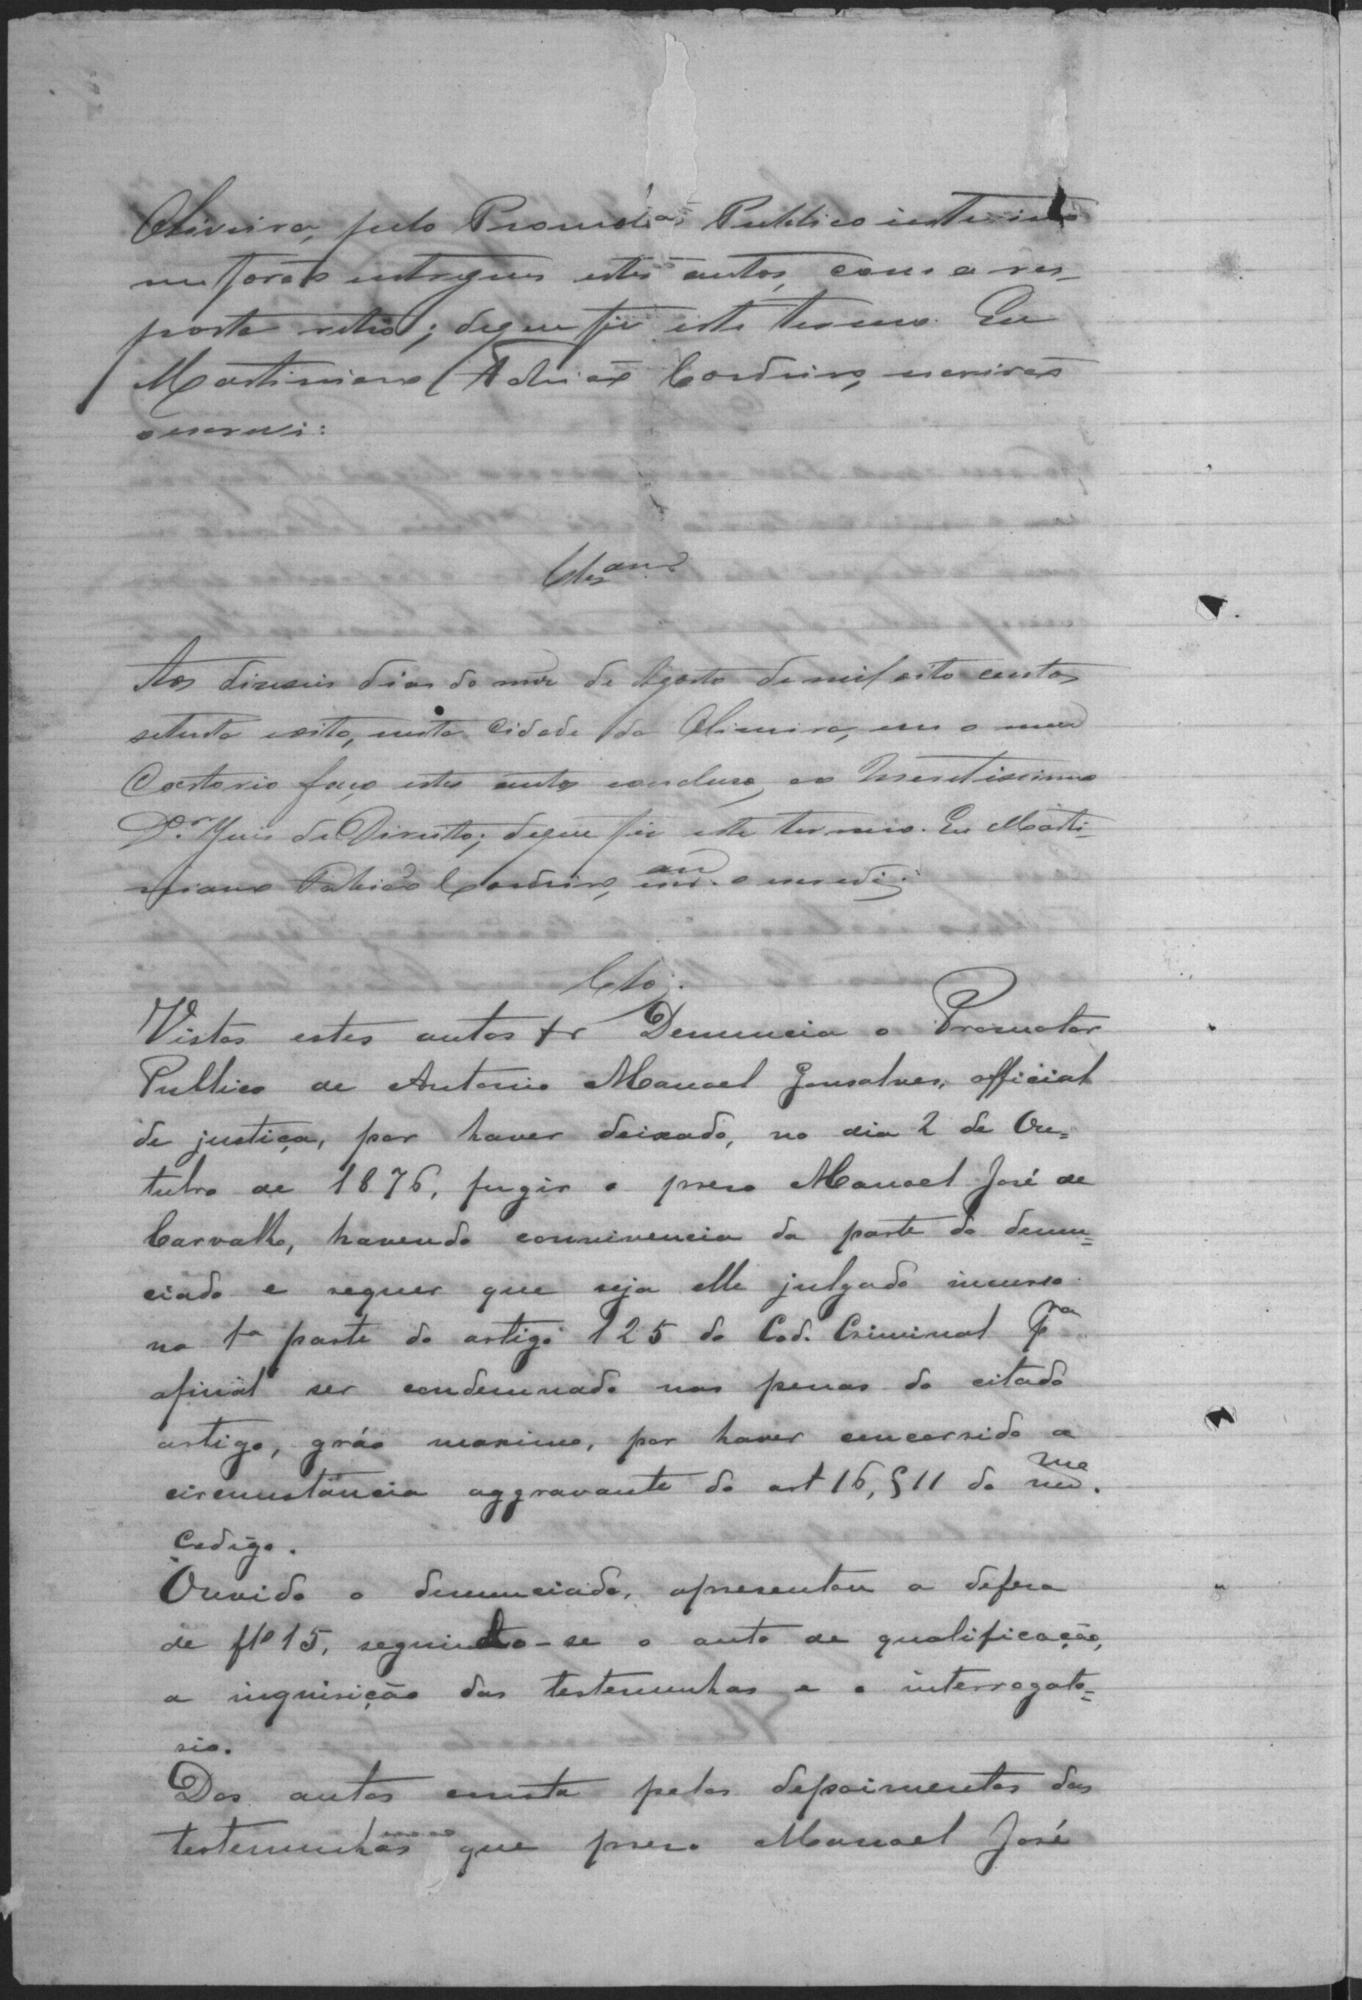 Oliveira, pelo Promotor Publico interino
me forão entregues estes autos, com a res-
posta retro; de que fiz este termo. Eu
Martiniano Patricio Cordeiro, escrivão
o escrevi:
Aos dizeseis dias do mez de Agosto de mil oito centos
setenta e oito, nesta Cidade da Oliveira, em o meu
Cartorio faço estes autos conclusos, ao Meretissimo
D.r Juis de Direito; de que fiz este termo. Eu Marti-
niano Patricio Cordeiro, o escrevi:
Clo.
Vistos estes autos Denuncia o Promotor
Publico de Antonio Manoel Gonsalves, official
de justiça, por haver deixado, no dia 2 de Ou=
tubro de 1876, fugir o preso Manoel José de
Carvalho, havendo connivencia da parte do denun=
ciado e requer que seja elle julgado incurso
na 1a parte do artigo 125 do Cod. Criminal pra
afinal ser condemnado nas penas do citado
artigo, gráo maximo, por haver concorrido a
circumstancia aggravante do art 16, § 11 do mmo.
Codigo.
Ouvido o denunciado, apresentou a defesa
de fls 15, seguindo-se o auto de qualificação,
a inquirição das testemunhas e o interrogato=
rio.
Dos autos consta pelos depoimentos das
testemunhas que preso Manoel José